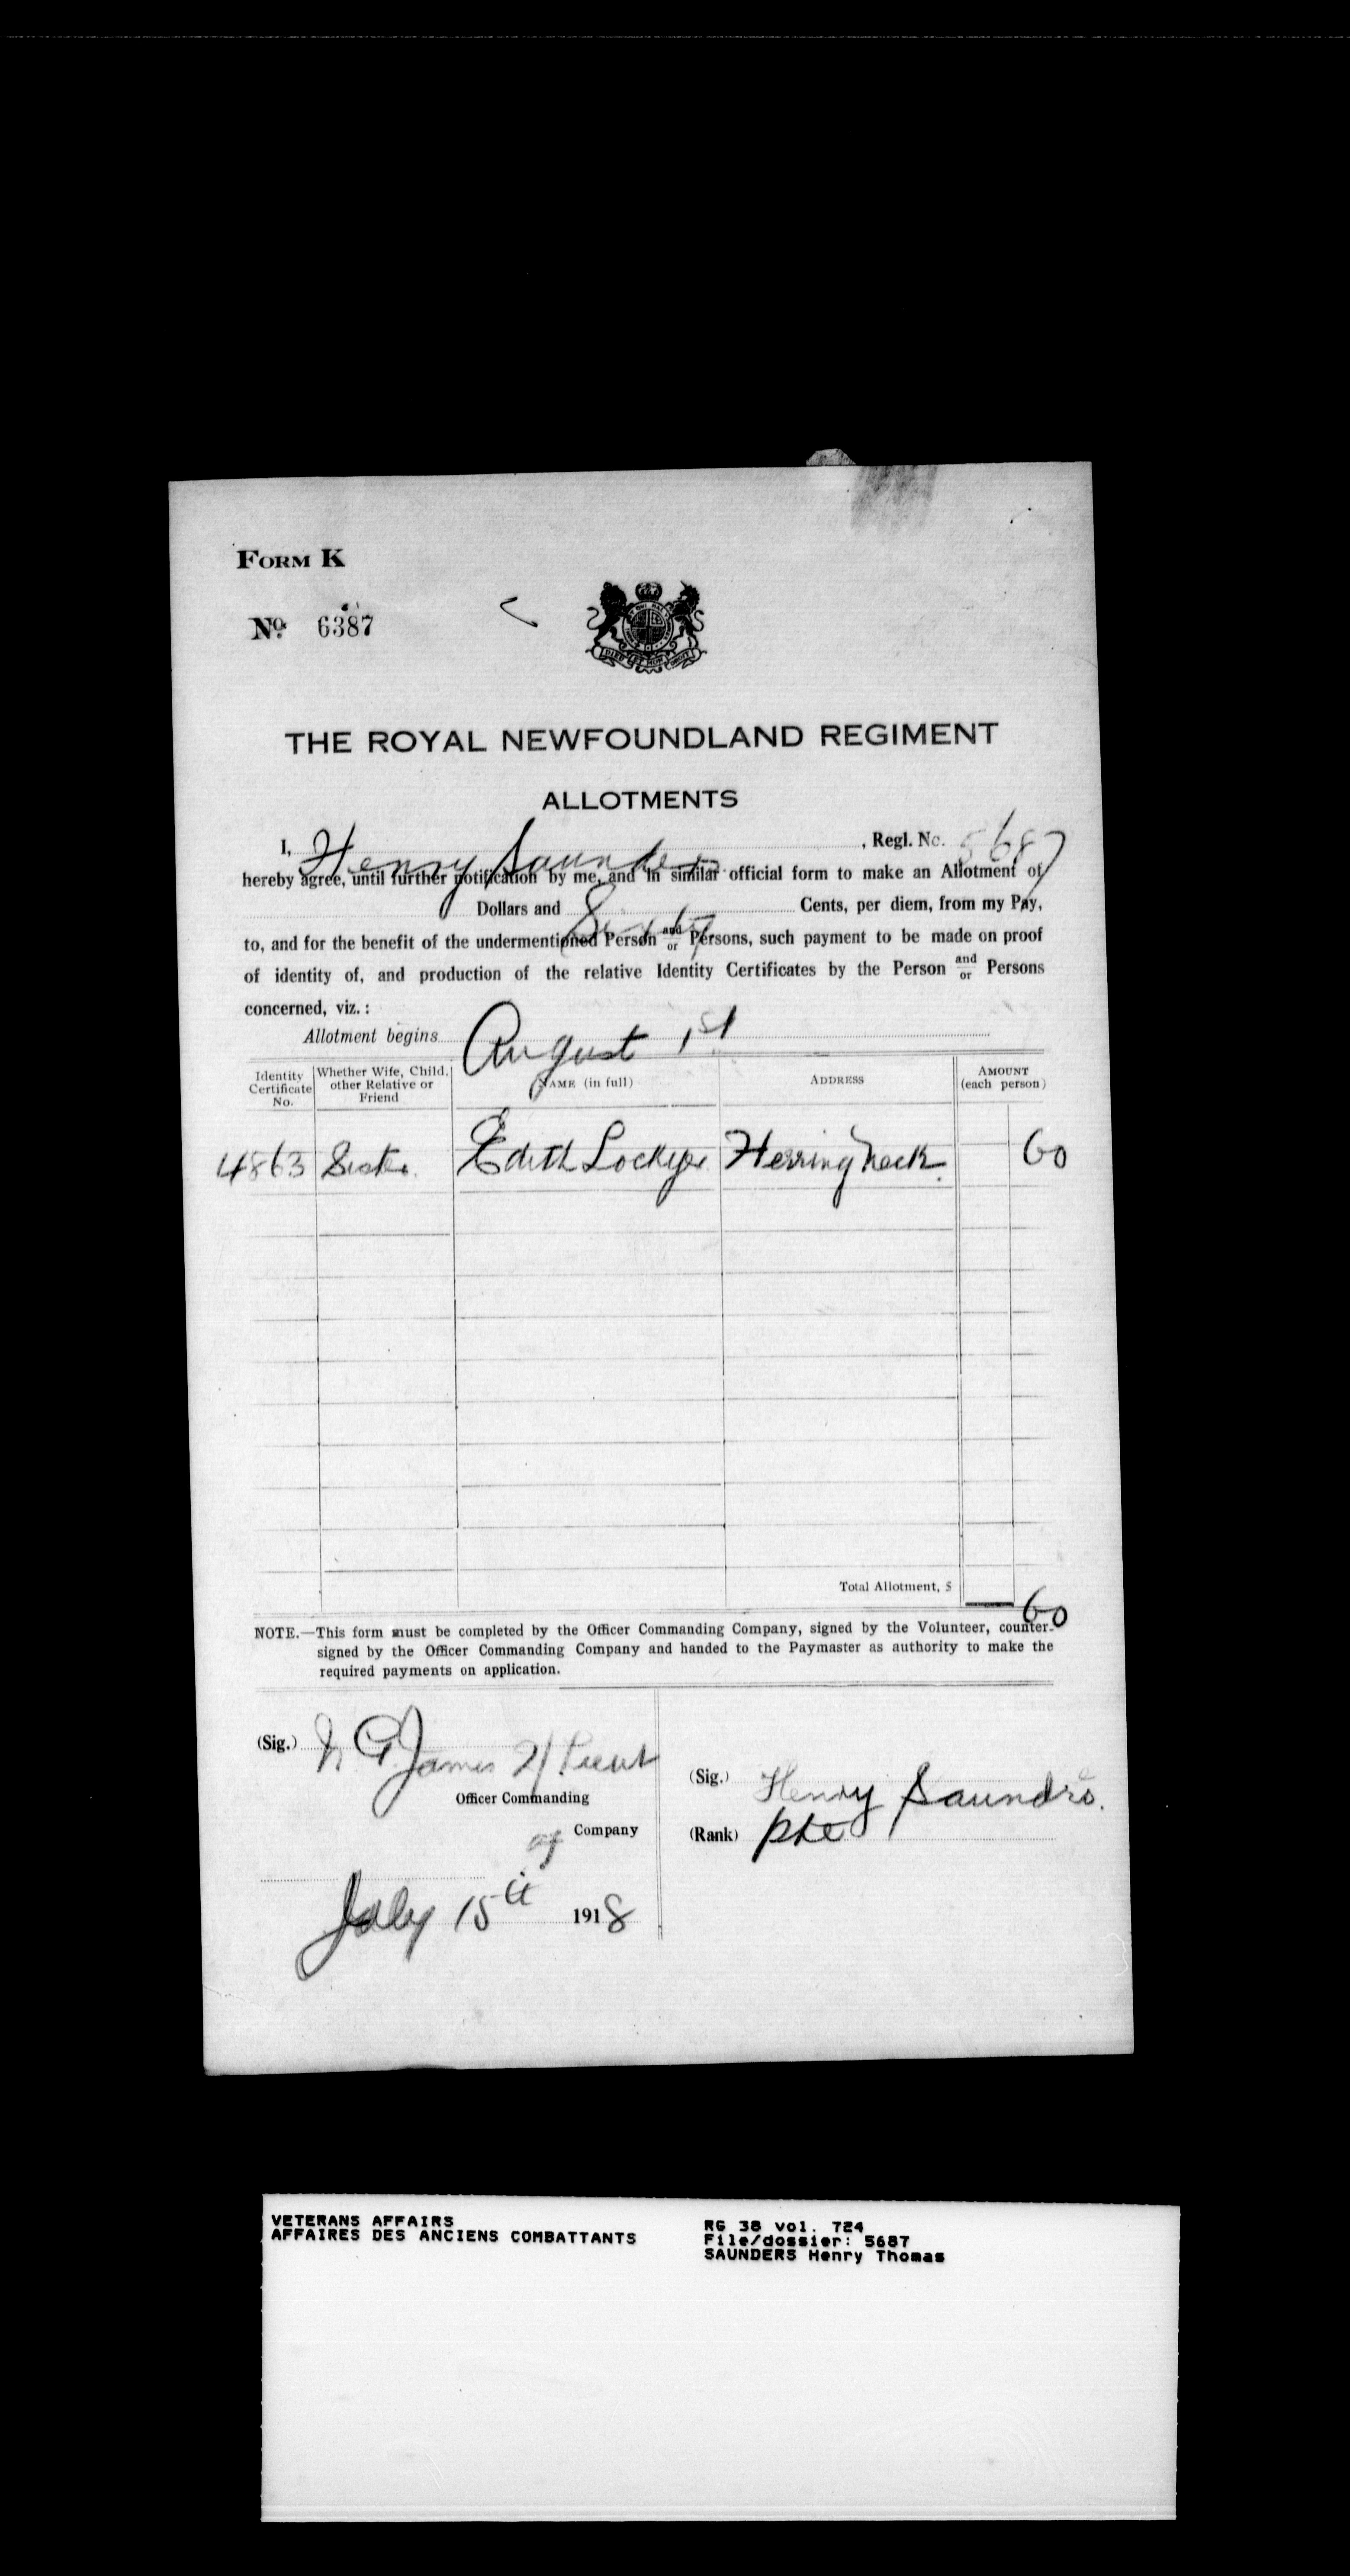 FORM K
No. 6387
THE ROYAL NEWFOUNDLAND REGIMENT
ALLOTMENTS
I, Henry Saunders, Regl. No. 5687
hereby agree, until further notification by me, and in similar official form to make an Allotment of
Dollars and Sixty Cents, per diem, from my Pay,
to, and for the benefit of the undermentioned Person and/or Persons, such payment to be made on proof
of identity of, and production of the relative Identity Certificates by the Person and/or Persons
concerned, viz.:
Allotment begins August 1st
Identity Certificate No. Whether Wife, Child, other Relative or Friend NAME (in full) ADDRESS AMOUNT (each person)
4863 Sister Edith Lockyer Herring Neck. 60
Total Allotment, $ 60
NOTE.—This form must be completed by the Officer Commanding Company, signed by the Volunteer, counter-
signed by the Officer Commanding Company and handed to the Paymaster as authority to make the
required payments on application.
(Sig.) James 2/Lieut
Officer Commanding
Company
July 15th 1918
(Sig.) Henry Saunders.
(Rank) pte
VETERANS AFFAIRS
AFFAIRES DES ANCIENS COMBATTANTS
RG 38 vol. 724
File/dossier: 5687
SAUNDERS Henry Thomas